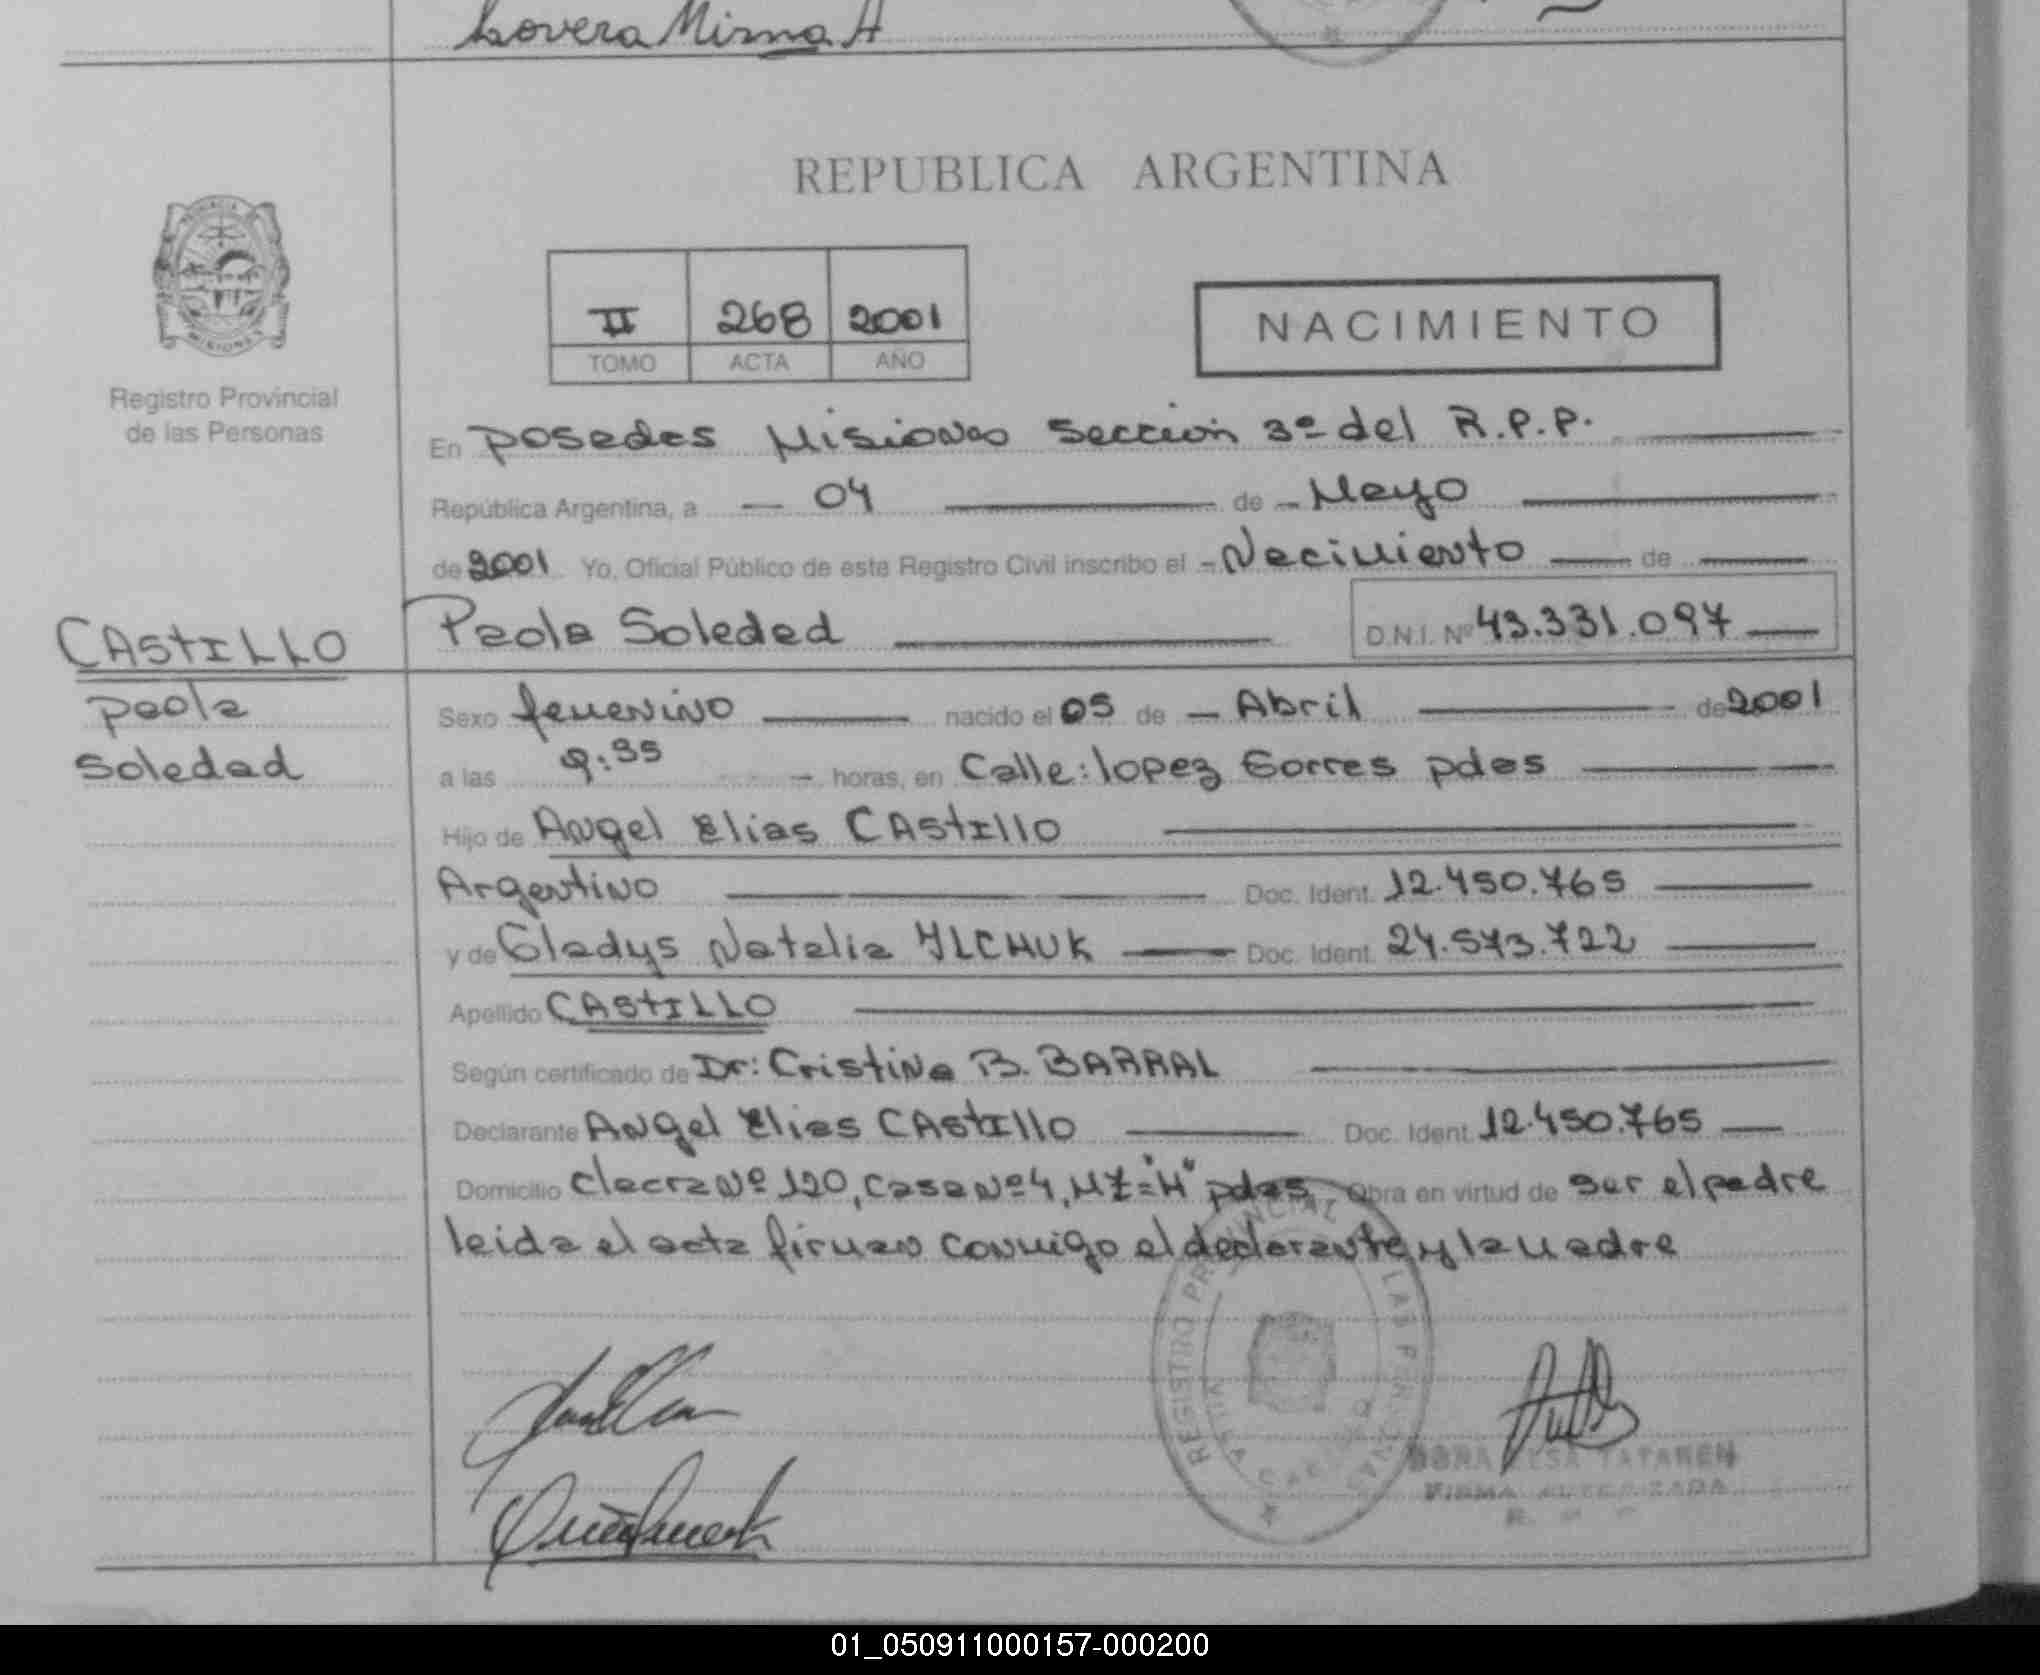 Lovera Mirna A
REPUBLICA ARGENTINA
II 268 2001
TOMO ACTA AÑO
NACIMIENTO
MISIONES
Registro Provincial
de las Personas
En posadas Misiones Sección 3º del R.P.P.
República Argentina, a 04 de Mayo
de 2001 Yo, Oficial Público de este Registro Civil inscribo el Nacimiento de
Paola Soledad D.N.I. Nº 43.331.097
CASTILLO
paola
Soledad
Sexo femenino nacido el 05 de Abril de 2001
a las 9:35 horas, en Calle: lopez torres pdas
Hijo de Angel Elias CAStIllo
Argentino Doc. Ident. 12.450.765
y de Gladys Natalia ILCHUK Doc. Ident. 24.573.722
Apellido CASTILLO
Según certificado de Dr: Cristina B. BARRAL
Declarante Angel Elias CAStIllo Doc. Ident. 12.450.765
Domicilio chacra Nº 120, casa Nº 4, Mz="H" pdas. Obra en virtud de ser el padre
leida el acta firman conmigo el declarante y la madre
REGISTRO PROVINCIAL LAS PERSONAS
FIRMA AUTORIZADA
01_050911000157-000200